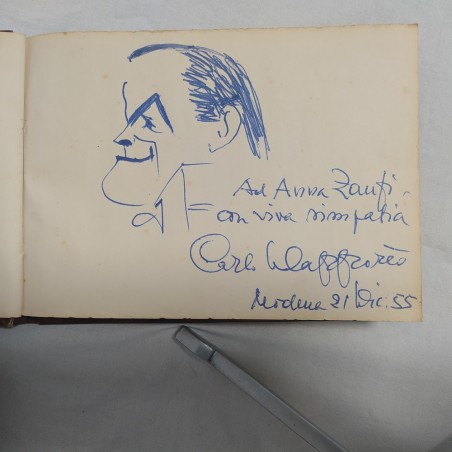 Ad Anna Zanfi -
con viva simpatia
Carlo
Modena 21 Dic. 55